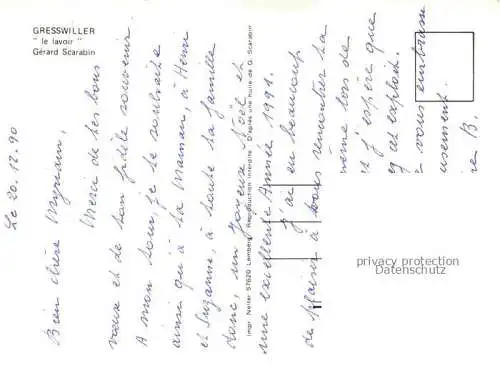 GRESSWILLER
"le lavoir"
Gérard Scarabin
Le 20.12.90
Bien chère Myriam,
Merci de tes bons
voeux et de ton fidèle souvenir.
A mon tour, je te souhaite
ainsi qu'à ta Maman, à Henri
et Suzanne, à toute ta famille
donc, un Joyeux Noël et
une excellente Année 1991.
J'ai eu beaucoup
de plaisir à vous rencontrer ta
même lors de
j'espère que
cet exploit.
vous embrasse
usement.
B.
Impr. Neiter 57620 Lemberg Reproduction Interdite D'après une huile de G. Scarabin
privacy protection
Datenschutz